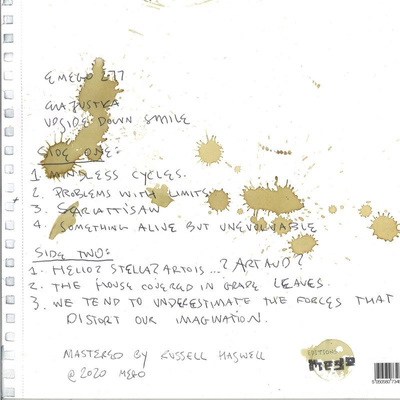 EMEGO 277
GIAJUSTKA
UPSIDE DOWN SMILE
SIDE ONE:
1. MINDLESS CYCLES.
2. PROBLEMS WITH LIMITS
3. SARIATTISAW
4. SOMETHING ALIVE BUT UNEVOLVABLE
SIDE TWO:
1. HELIO? STELLA? ARTOIS...? ARTAUD?
2. THE HOUSE COVERED IN GRAPE LEAVES.
3. WE TEND TO UNDERESTIMATE THE FORCES THAT
DISTORT OUR IMAGINATION.
MASTERED BY RUSSELL HASWELL
@ 2020 MEGO
EDITIONS
mego